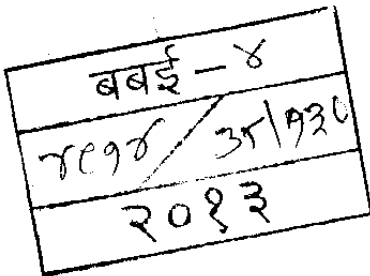 बबई - ४
४९१४ / ३८ | १३०
२०१३